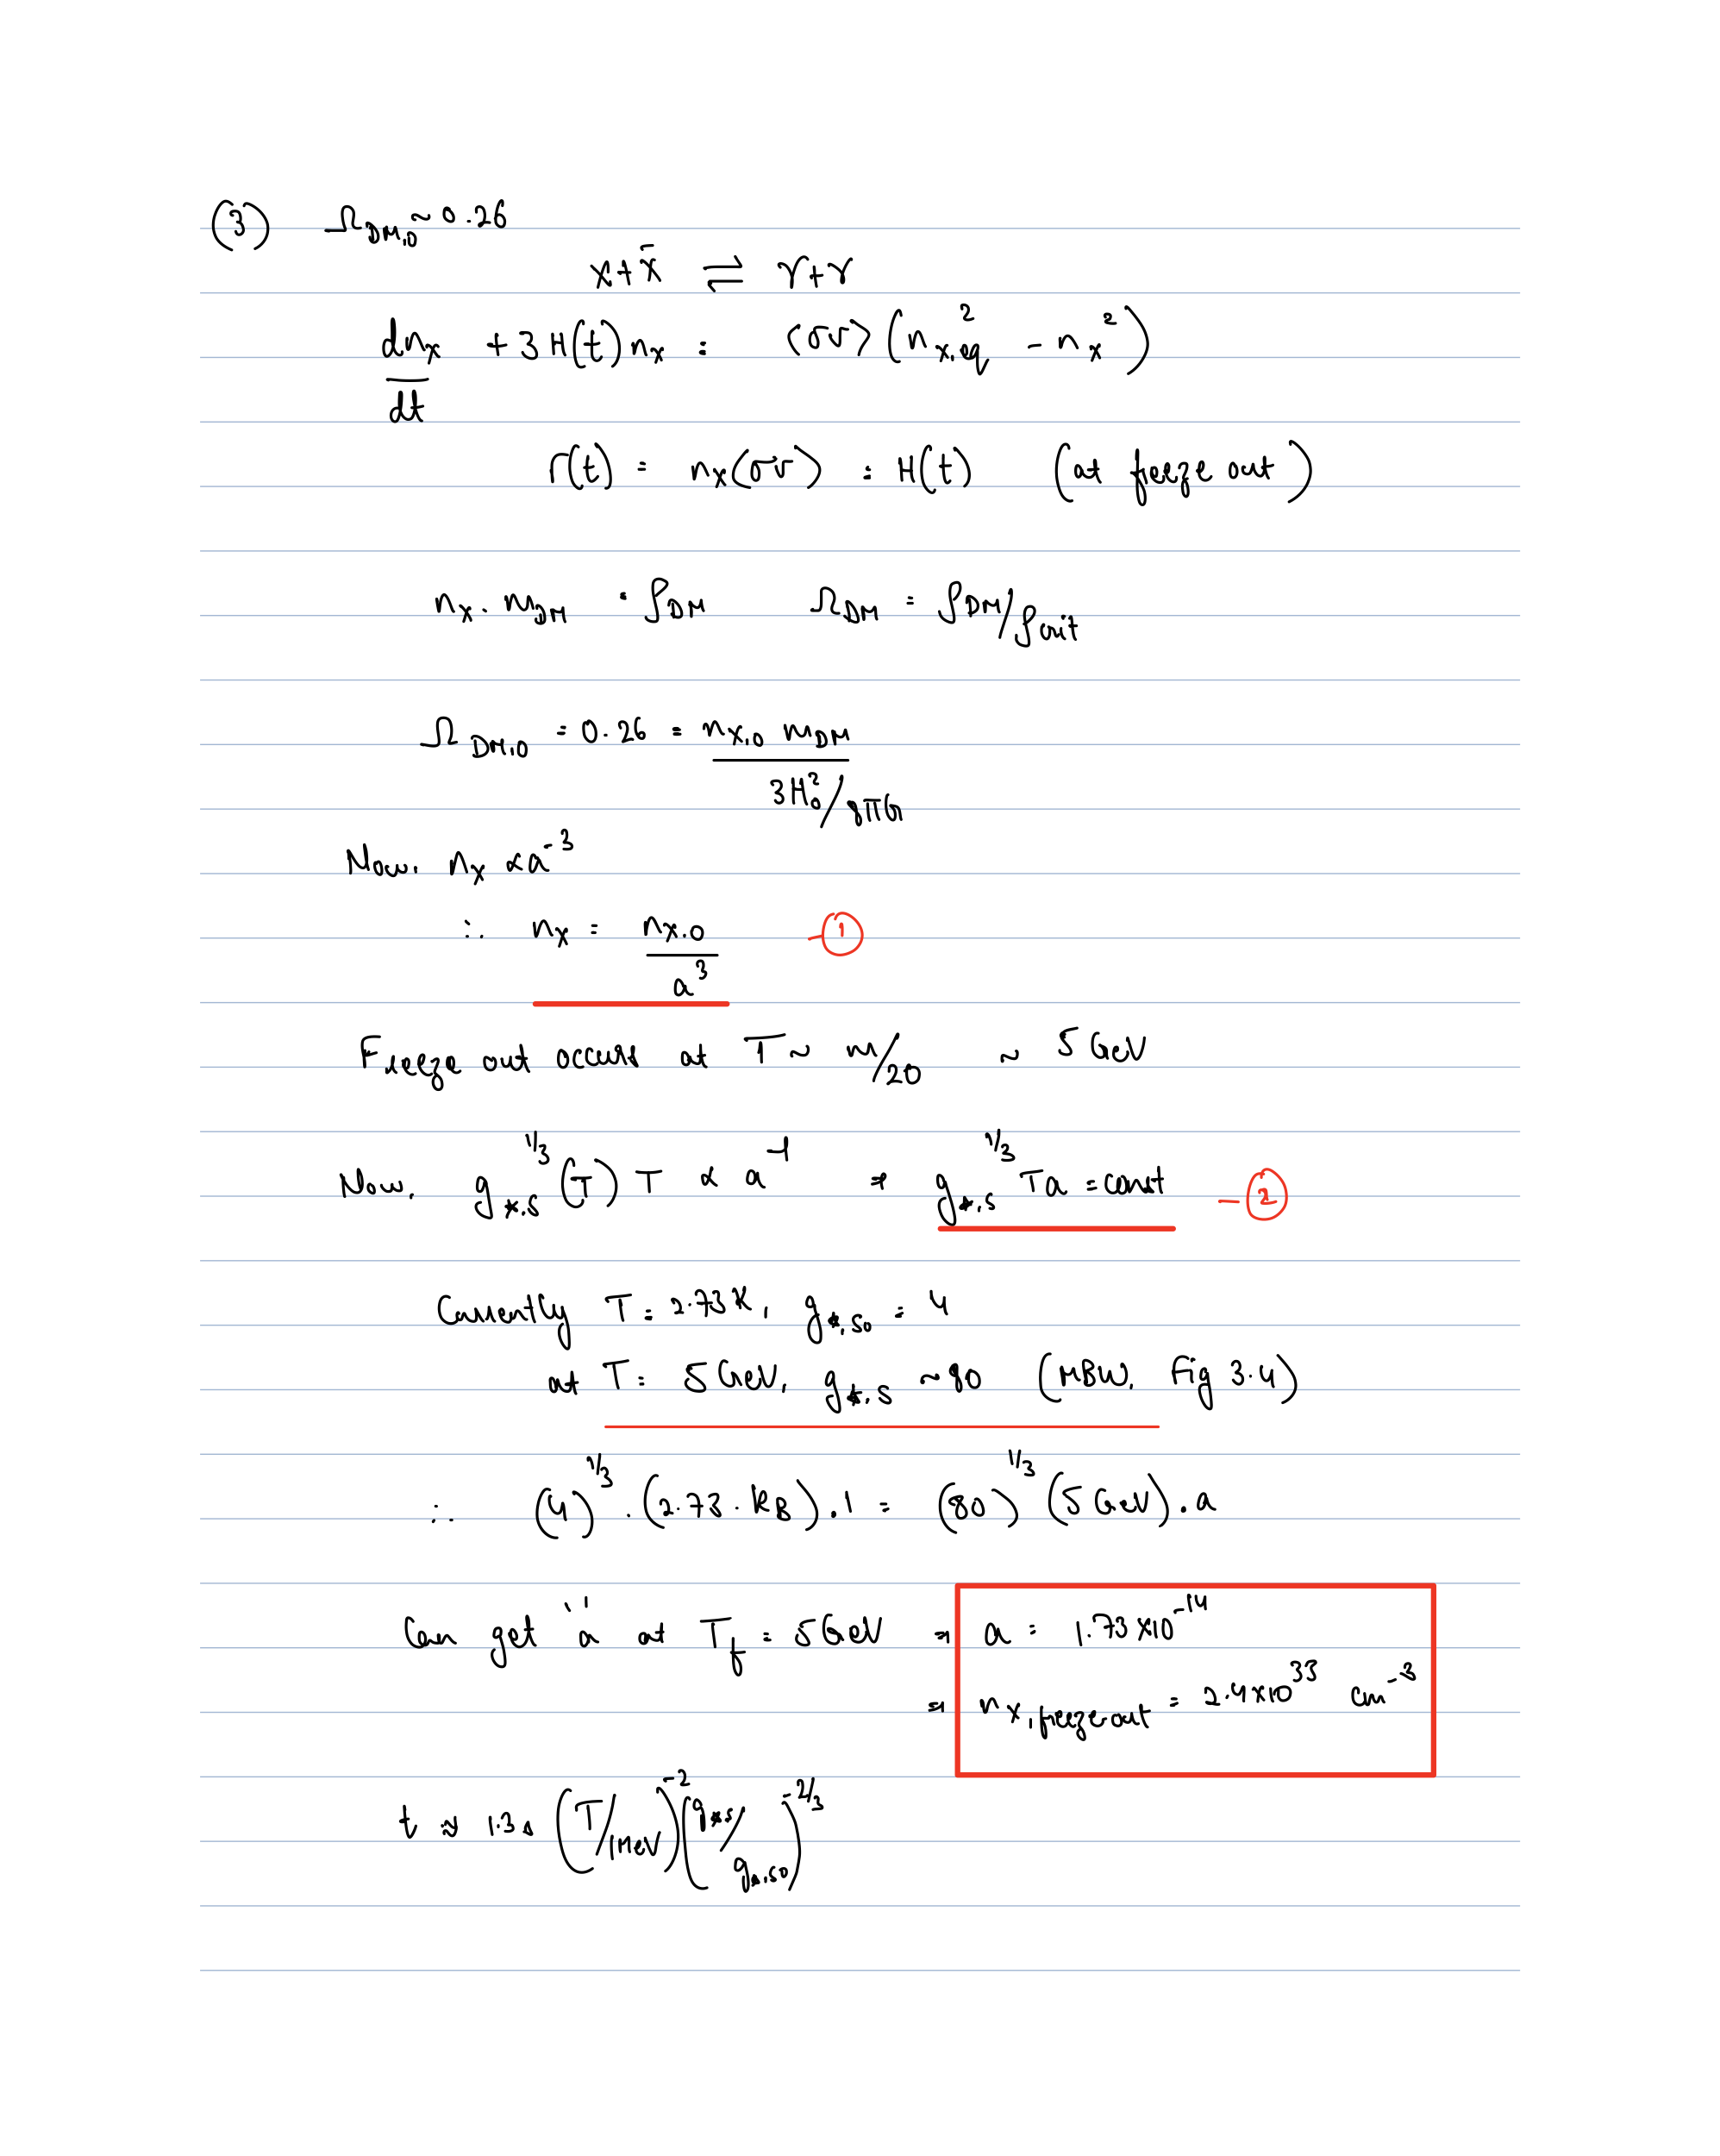 (3) Ω_DM,0 ~ 0.26
x + x̄ ⇌ γ + γ
dn_x/dt + 3H(t)n_x = <σv>(n_x,eq² - n_x²)
Γ(t) = n_x<σv> = H(t) (at freeze out)
n_x . m_DM = ρ_DM Ω_DM = ρ_DM/ρ_crit
Ω_DM,0 = 0.26 = n_x,0 m_DM / (3H_0²/8πG)
Now, n_x ∝ a^-3
∴ n_x = n_x,0 / a³ - ①
Freeze out occurs at T ~ m/20 ~ 5 GeV
Now, g_*,s^1/3 (T) T ∝ a^-1 ⇒ g_*,s^1/3 Ta = const - ②
Currently T = 2.73K, g_*,s0 = 4
at T = 5 GeV, g_*,s ~ 80 (MBW, Fig 3.4)
∴ (4)^1/3 . (2.73 . k_B) . 1 = (80)^1/3 (5 GeV) . a
Can get "a" at T_f = 5 GeV ⇒ a = 1.73 x 10^-14
⇒ n_x,freezeout = 2.4 x 10^33 cm^-3
t ≈ 1.3 s (T/1MeV)^-2 (g_*s/g_*,s0)^-2/3